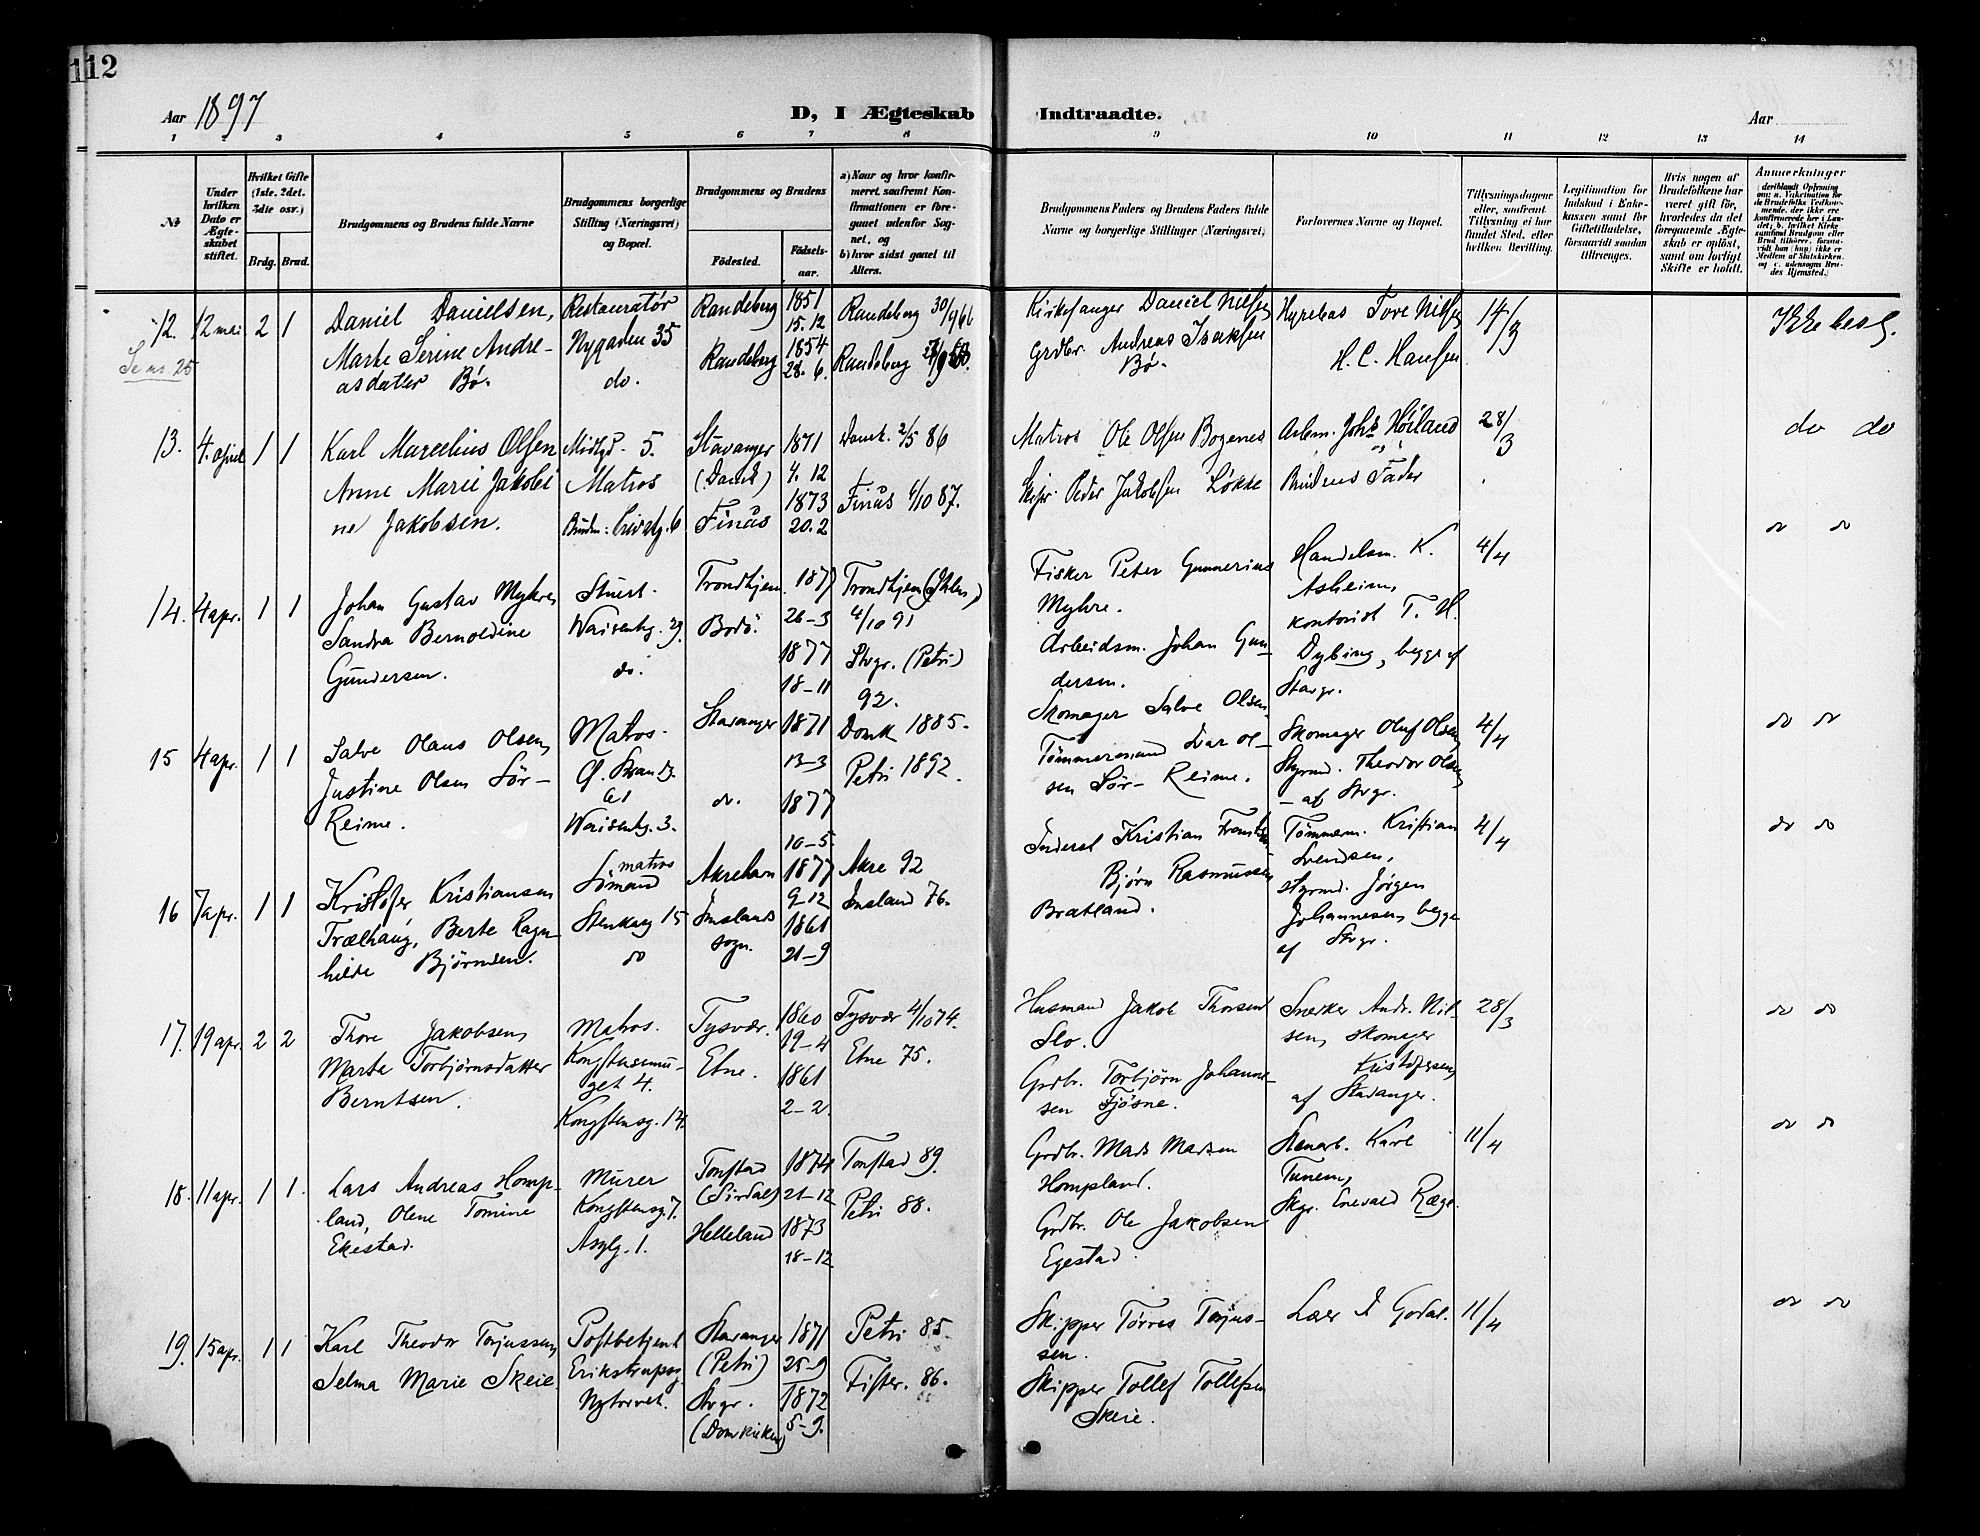 112
Aar 1897
D, I Ægteskab Indtraadte.
Aar
1 2 3 4 5 6 7 8 9 10 11 12 13 14
No
Under hvilken Dato er Ægteskabet stiftet.
Hvilket Gifte (1ste. 2det. 3die osv.)
Brdg. Brud.
Brudgommens og Brudens fulde Navne
Brudgommens borgerlige Stilling (Næringsvei) og Bopæl.
Brudgommens og Brudens
Fødested.
Fødselsaar.
a) Naar og hvor konfirmeret, saafremt Konfirmationen er foregaaet udenfor Sognet, og
b) hvor sidst gaaet til Alters.
Brudgommens Faders og Brudens Faders fulde Navne og borgerlige Stillinger (Næringsvei)
Forlovernes Navne og Bopæl.
Tillysningsdagene eller, saafremt Tillysning ei har fundet Sted, efter hvilken Bevilling.
Legitimation for Indskud i Enkekassen samt for Giftetilladelse, forsaavidt saadan tiltrænges.
Hvis nogen af Brudefolkene har været gift før, hvorledes da det foregaaende Ægteskab er opløst, samt om lovligt Skifte er holdt.
Anmerkninger
12. 12 mai 2 1
Se nr. 25
Daniel Danielsen,
Marte Serine Andre-
asdatter Bø.
Restauratør
Nygaden 35
do.
Randeberg 1851
15. 12
Randeberg 1854
28. 6.
Randeberg 30/9 66
Randeberg
Kirkesanger Daniel Nilsen
Grdbr. Andreas Isaksen
Bø.
Hyrebas Tore Nilsen
H. C. Hansen
14/3
Ikke besl.
13. 4. april 1 1
Karl Marcelius Olsen
Anne Marie Jakobi
ne Jakobsen.
5.
Matros
Stavanger
(Domk)
Finås
1871
4. 12
1873
20. 2
Domk. 2/5 86
Finås 4/10 87.
Matros Ole Olsen Bogenes
Skipr. Peder Jakobsen Løkke
Arbm. Johs Høiland
Brudens Fader
28/3
do do
14. 4 apr. 1 1
Johan Gustav Myhre,
Sandra Bernoldine
Gundersen.
Stuert.
Waisenhg. 29.
do.
Trondhjem.
Bodø.
1877
26-3
1877
18-11
Trondhjem (Ihlen,)
4/10 91
Stvgr. (Petri)
92.
Fisker Peter Gunnerius
Myhre.
Arbeidsm. Johan Gun-
dersen.
Handelsm. K.
Asheim,
kontorist T. H.
Dybing, begge af
Stavgr.
4/4
do do
15 4 apr. 1 1
Salve Olaus Olsen,
Justine Olsen Sør-
Reime.
Matros.
Gl. Strand.
61
Waisenhg. 3.
Stavanger
do.
1871
13-3
1877
10-5.
Domk 1885.
Petri 1892.
Skomager Salve Olsen.
Tømmermand Ivar Ol-
sen Sør-Reime.
Skomager Oluf Olsen,
Styrmd. Theodor Olsen,
- af Stvgr.
4/4
do do
16 7 apr. 1 1
Kristofer Kristiansen
Trælhaug, Berte Ragn-
hilde Bjørnsen.
matros
Sømand
Stenkarg 15
do
Akrehavn
Imslands
sogn.
1877
9-12
1861
21-9
Akre 92
Imsland 76.
Inderst Kristian
Bjørn Rasmussen
Bratland.
Tømmerm. Kristian
Svendsen,
styrmd. Jørgen
Johannesen, begge
af Stvgr.
4/4
do do
17. 19 apr. 2 2
Thore Jakobsen,
Marta Torbjørnsdatter
Berntsen.
Matros.
Kongstensmu-
get 4.
Kongstensg. 14.
Tysvær.
Etne.
1860
19-4
1861
2-2
Tysvær 4/10 74.
Etne 75.
Husmand Jakob Thorsen
Slo.
Grdbr. Torbjørn Johanne-
sen Fjøsne.
Snekker Andr. Nil-
sen, skomager
Kristofersen,
af Stavanger.
28/3
do do
18. 11 apr. 1 1.
Lars Andreas Homp-
land, Olene Tomine
Ekestad.
Murer
Kongstensg. 7.
Asylg. 1.
Tonstad
(Sirdal)
Helleland
1874
21-12
1873
18-12
Tonstad 89.
Petri 88.
Grdbr. Mads Madsen
Hompland.
Grdbr. Ole Jakobsen
Egestad.
Stenarb. Karl
Tunem,
Skgr. Enevald Ræge.
11/4
do do
19. 15 apr. 1 1
Karl Theodor Torjussen,
Selma Marie Skeie.
Postbetjent
Erikstrupsg.
Nytorvet.
Stavanger
(Petri)
Stvgr.
(Domkirken)
1871
25-9
1872
5-9.
Petri 85.
Fister. 86.
Skipper Tørres Torjus-
sen.
Skipper Tollef Tollefsen
Skeie.
Lær A Godal.
11/4
do do